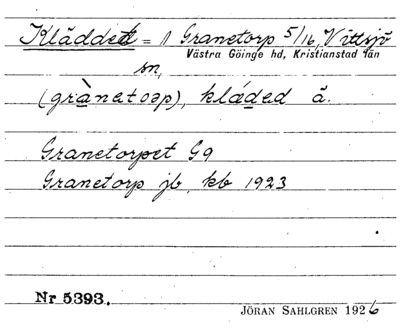 Kläddet = 1 Granetorp 5/16, Vittsjö
Västra Göinge hd, Kristianstad län
sn,
(grànatoəp), kláded å.
Granetorpet G9
Granetorp jb, kb 1923
Nr 5393.
JÖRAN SAHLGREN 1926